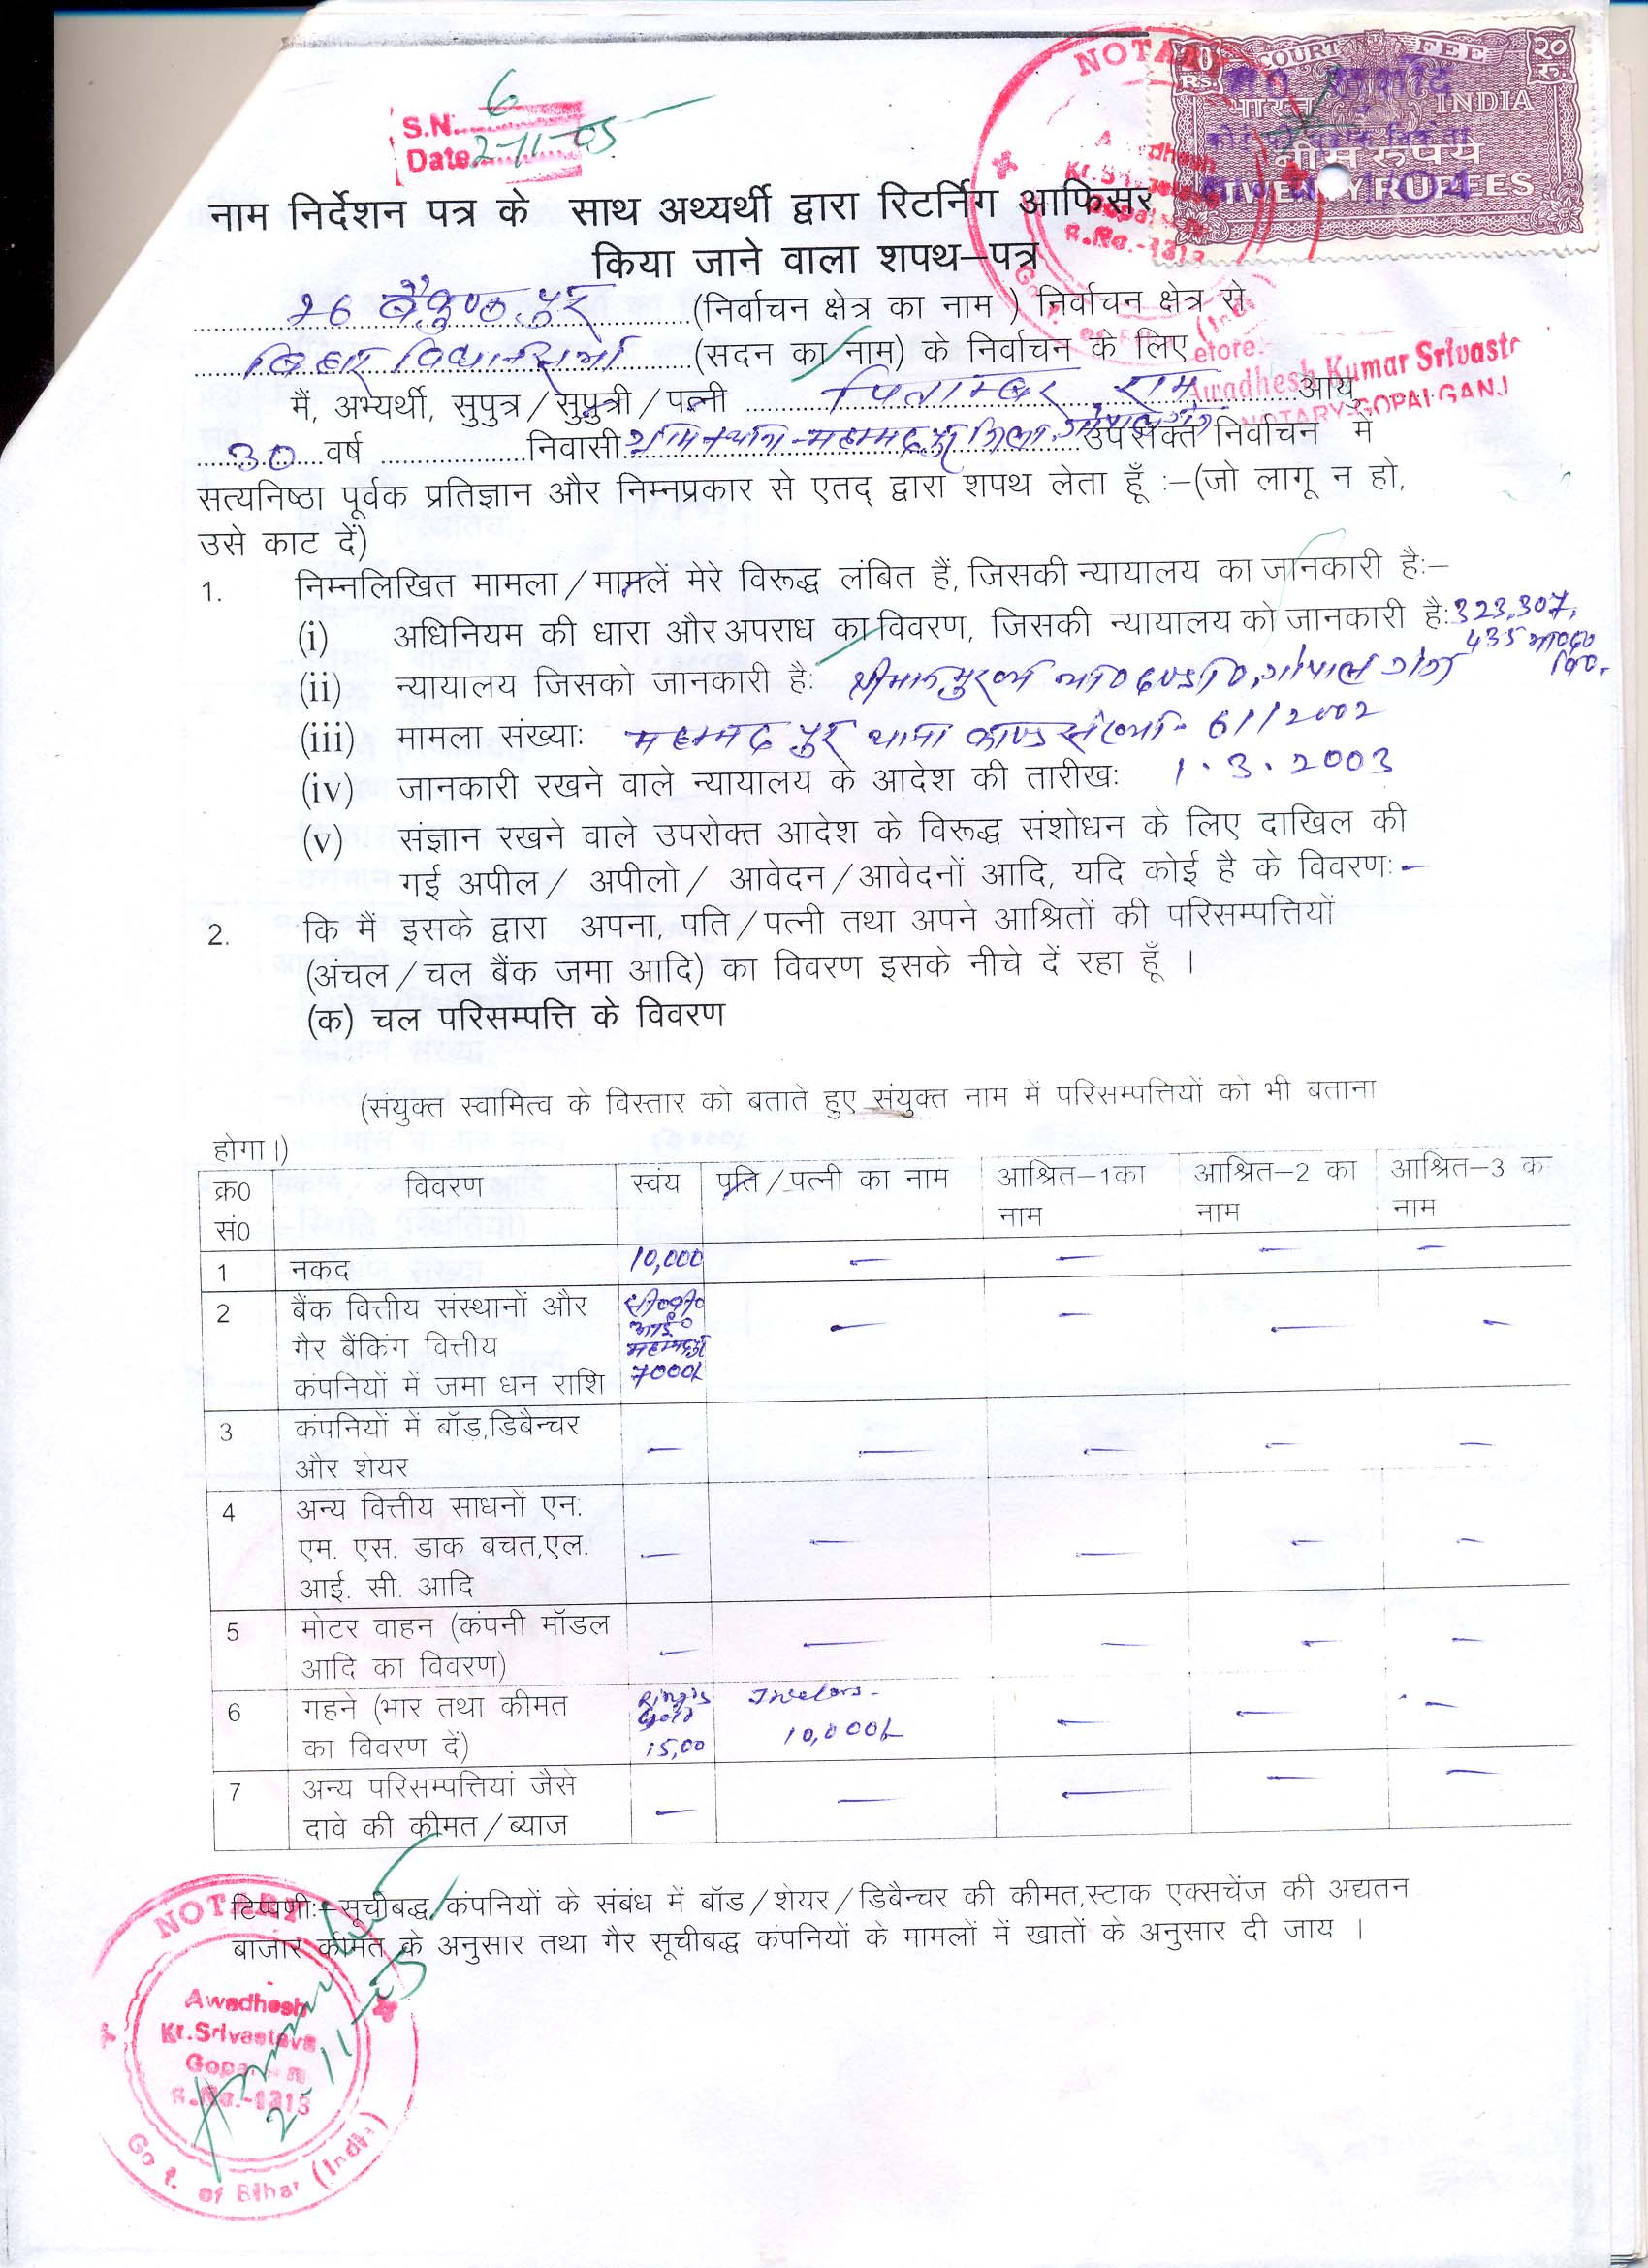 S.N. 6
Date 2-11-05
NOTARY
COURT FEE
20 RS
२० रु.
भारत INDIA
बीस रुपये
TWENTY RUPEES
1/04
नाम निर्देशन पत्र के साथ अथ्यर्थी द्वारा रिटर्निग आफिसर
किया जाने वाला शपथ–पत्र
R.No.-1313
26 बैकुण्ठपुर (निर्वाचन क्षेत्र का नाम ) निर्वाचन क्षेत्र से
बिहार विधान सभा (सदन का नाम) के निर्वाचन के लिए
etore.
Awadhesh Kumar Srivast
NOTARY GOPALGANJ
मैं, अभ्यर्थी, सुपुत्र/सुपुत्री/पत्नी पिताम्बर राम आयु
30 वर्ष निवासी महम्मदपुर जिला गोपालगंज उपरोक्त निर्वाचन में
सत्यनिष्ठा पूर्वक प्रतिज्ञान और निम्नप्रकार से एतद् द्वारा शपथ लेता हूँ :–(जो लागू न हो,
उसे काट दें)
1. निम्नलिखित मामला/मामलें मेरे विरूद्ध लंबित हैं, जिसकी न्यायालय का जानकारी है:–
(i) अधिनियम की धारा और अपराध का विवरण, जिसकी न्यायालय को जानकारी है: 323,307,
435 भा०द०
वि०.
(ii) न्यायालय जिसको जानकारी है: श्रीमान मुख्य न्या० दण्डा०, गोपालगंज
(iii) मामला संख्या: महम्मदपुर थाना काण्ड संख्या- 61/2002
(iv) जानकारी रखने वाले न्यायालय के आदेश की तारीख: 1.3.2003
(v) संज्ञान रखने वाले उपरोक्त आदेश के विरूद्ध संशोधन के लिए दाखिल की
गई अपील/ अपीलो/ आवेदन/आवेदनों आदि, यदि कोई है के विवरण: –
2. कि मैं इसके द्वारा अपना, पति/पत्नी तथा अपने आश्रितों की परिसम्पत्तियों
(अंचल/चल बैंक जमा आदि) का विवरण इसके नीचे दें रहा हूँ ।
(क) चल परिसम्पत्ति के विवरण
(संयुक्त स्वामित्व के विस्तार को बताते हुए संयुक्त नाम में परिसम्पत्तियों को भी बताना
होगा।)
क्र0 विवरण स्वंय पति/पत्नी का नाम आश्रित–1का आश्रित–2 का आश्रित–3 क
सं0 नाम नाम नाम
1 नकद 10,000 — — — —
2 बैंक वित्तीय संस्थानों और
गैर बैंकिंग वित्तीय महम्मदपुर — — — —
कंपनियों में जमा धन राशि 7000/-
3 कंपनियों में बॉड,डिबैन्चर
और शेयर — — — — —
4 अन्य वित्तीय साधनों एन.
एम. एस. डाक बचत,एल. — — — — —
आई. सी. आदि
5 मोटर वाहन (कंपनी मॉडल
आदि का विवरण) — — — — —
6 गहने (भार तथा कीमत Ring's Gold Jwelors- — — —
का विवरण दें) 15,00 10,000/-
7 अन्य परिसम्पत्तियां जैसे
दावे की कीमत/ब्याज — — — — —
टिप्पणी:–सूचीबद्ध/कंपनियों के संबंध में बॉड/शेयर/डिबैन्चर की कीमत,स्टाक एक्सचेंज की अद्यतन
बाजार कीमत के अनुसार तथा गैर सूचीबद्ध कंपनियों के मामलों में खातों के अनुसार दी जाय ।
NOTARY
Awadhesh
Kr.Srivastava
R.No.-1313
Govt. of Bihar (India)
2-11-05